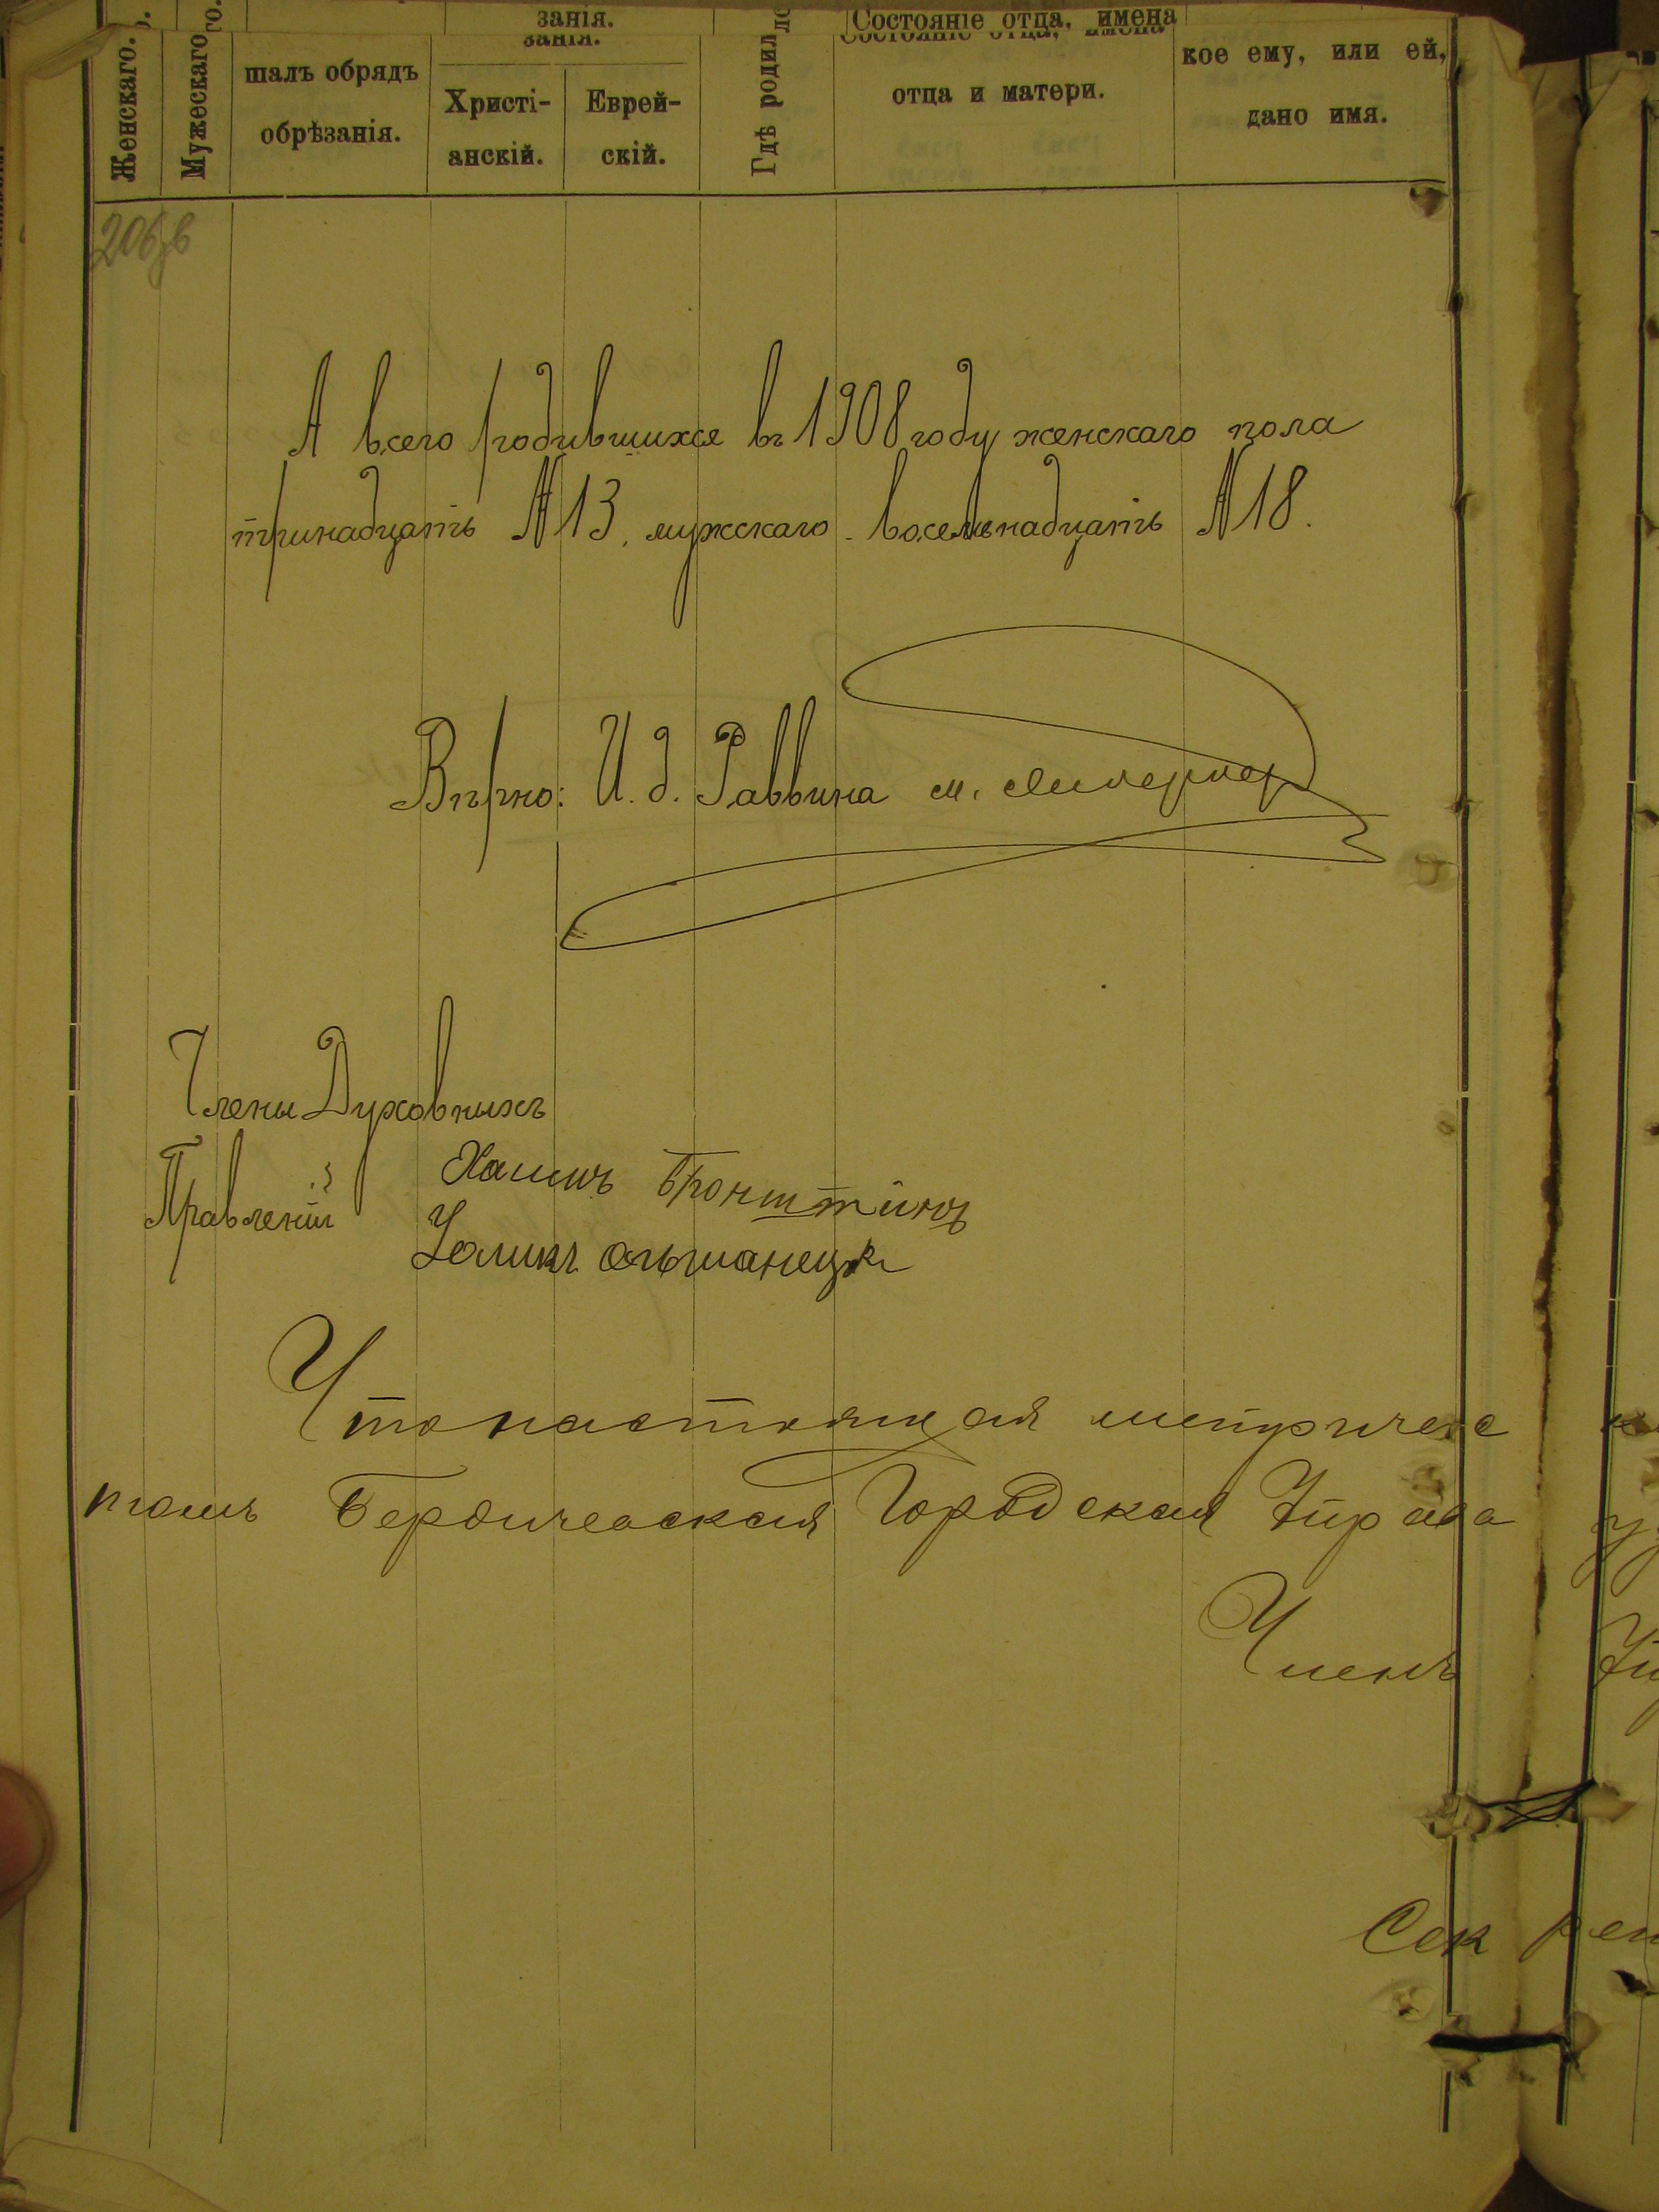 занія.
Состояніе отца, имена
Женскаго.
Мужескаго
шалъ обрядъ
обрѣзанія.
занія.
Христі-
анскій.
Еврей-
скій.
Гдѣ родил
отца и матери.
кое ему, или ей,
дано имя.
206
А всего родившихся въ 1908 году женскаго пола
тринадцать № 13. мужскаго - восемьнадцать № 18.
Вѣрно: И. д. Раввина М.
Члены Духовныхъ
Правленій
Хаимъ Бронштинъ
Ольшанецк
Что настоящая метричес
томъ Бердичевская Городская Управа
Членъ
Сек рет